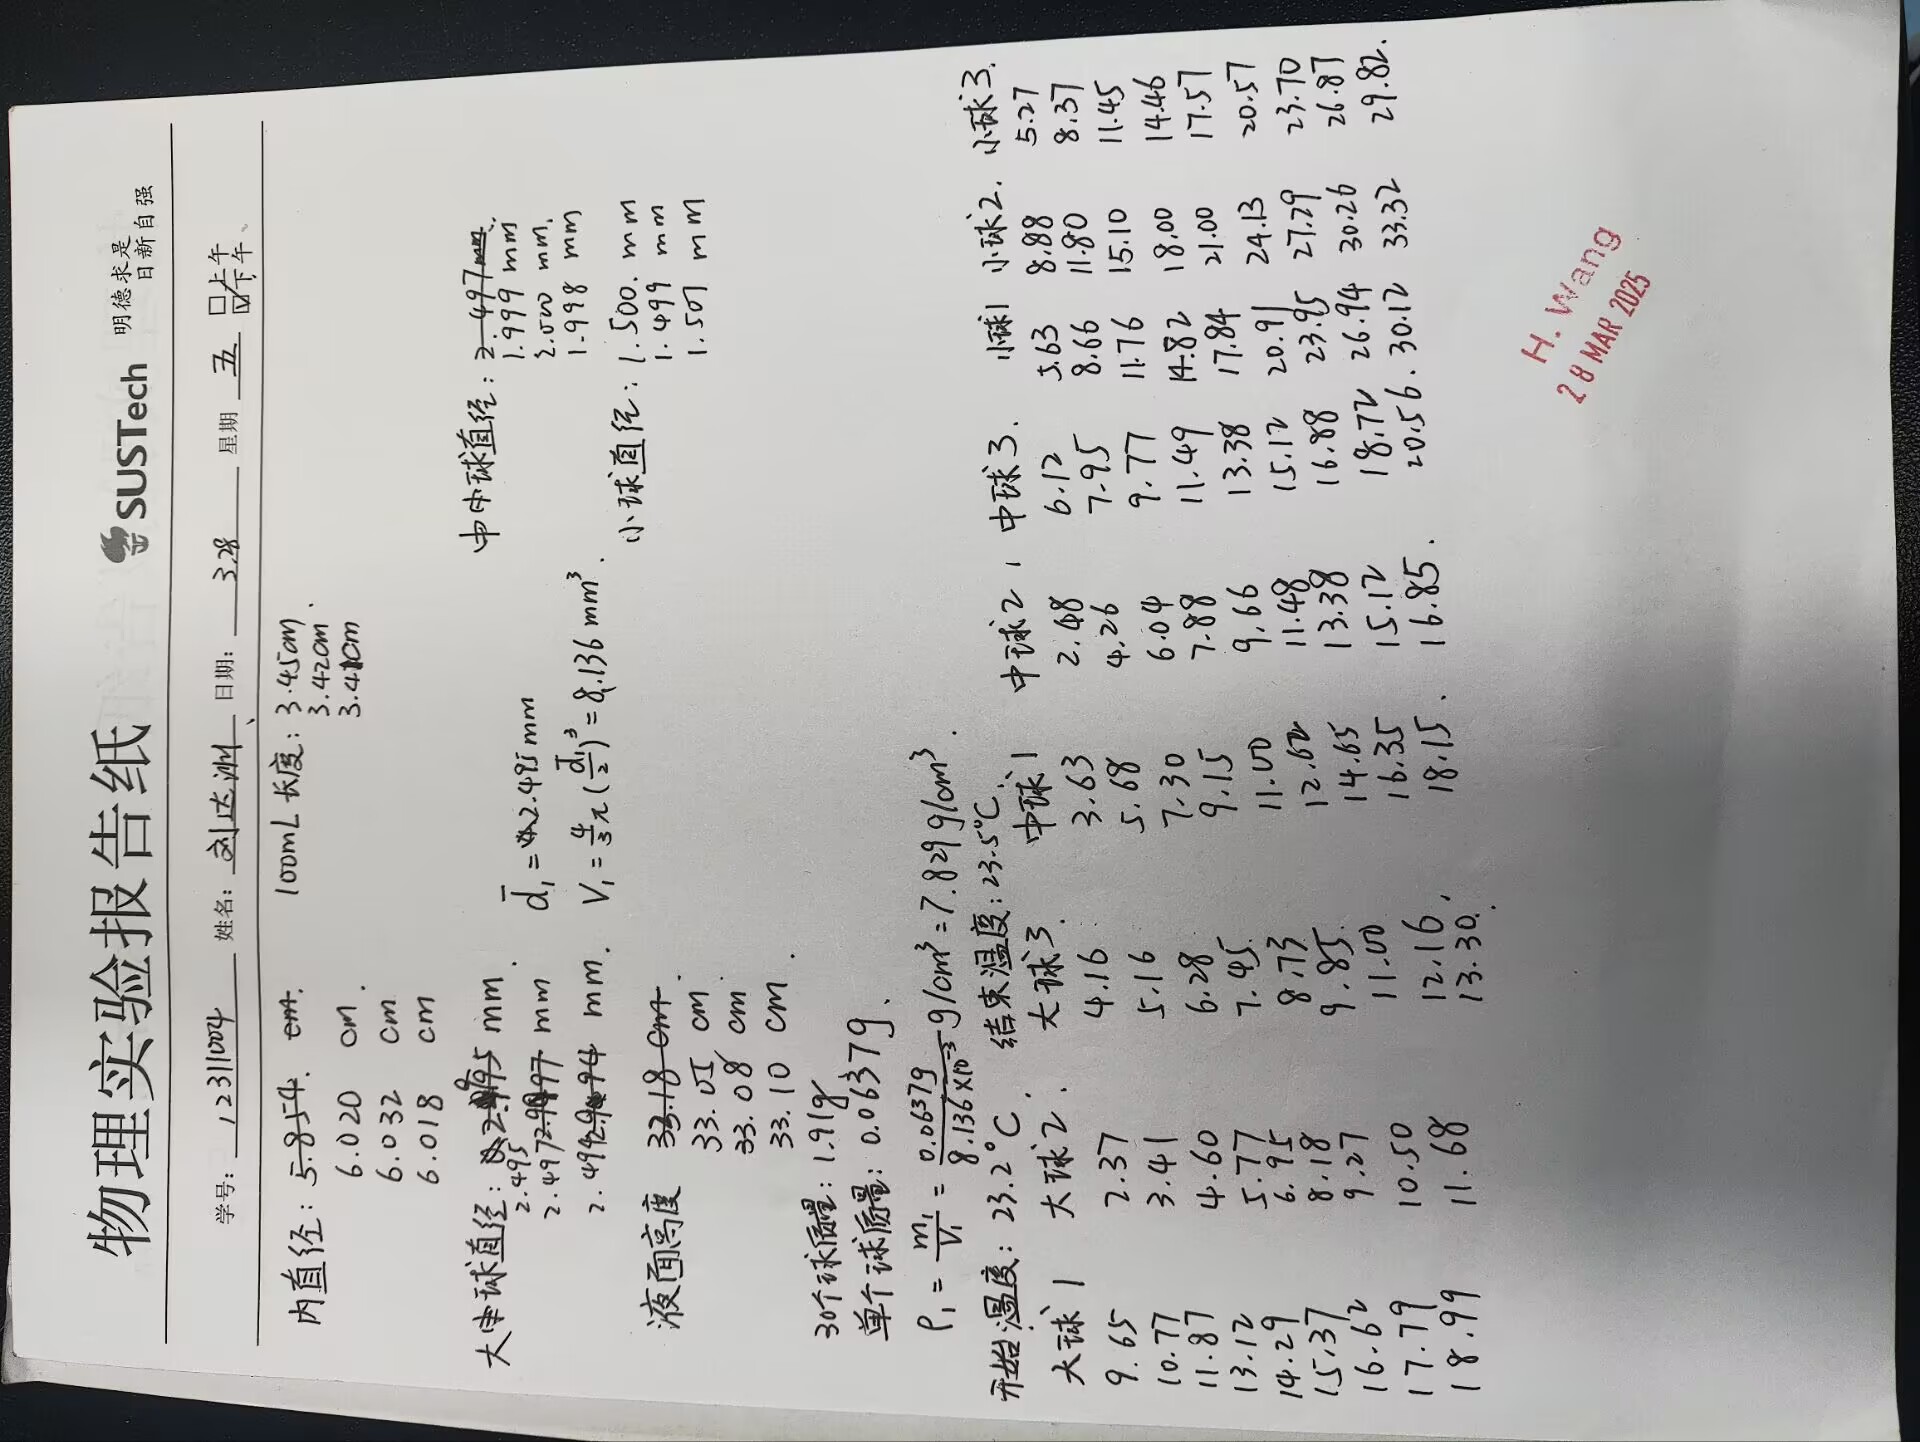 物理实验报告纸
SUSTech 明德求是 日新自强
学号: 12311004 姓名: 刘达洲 日期: 3.28 星期 五 □上午
☑下午
内直径: 5.854 cm. 100mL 长度: 3.45cm
3.42cm
6.020 cm. 3.41cm
6.032 cm
6.018 cm
大球直径: 2.495 mm. 中球直径: 2.497mm
2.497 mm 1.999 mm
2.494 mm. 2.000 mm.
1.998 mm
d̄₁ = 2.495 mm
V₁ = 4/3 π (d̄₁/2)³ = 8.136 mm³.
小球直径: 1.500. mm
1.499 mm
1.501 mm
液面高度 33.18 cm.
33.05 cm
33.08 cm
33.10 cm.
30个球质量: 1.91g
单个球质量: 0.0637g.
ρ₁ = m₁/V₁ = 0.0637g/8.136×10⁻³ g/cm³ = 7.829 g/cm³.
开始温度: 23.2°C. 结束温度: 23.5°C.
大球1 大球2. 大球3. 中球1 中球2, 中球3. 小球1 小球2. 小球3.
9.65 2.37 4.16 3.63 2.48 6.12 5.63 8.88 5.27
10.77 3.41 5.16 5.68 4.26 7.95 8.66 11.80 8.37
11.87 4.60 6.28 7.30 6.04 9.77 11.76 15.10 11.45
13.12 5.77 7.45. 9.15 7.88 11.49 14.82 18.00 14.46
14.29 6.95 8.73 11.00 9.66 13.38 17.84 21.00 17.57
15.37 8.18 9.85. 12.62 11.48 15.12 20.91 24.13 20.57
16.62 9.27 11.00 14.65 13.38 16.88 23.95 27.29 23.70
17.79 10.50 12.16, 16.35 15.12 18.72 26.94 30.26 26.87
18.99 11.68 13.30. 18.15. 16.85. 20.56. 30.12 33.32 29.82.
H. Wang
28 MAR 2025